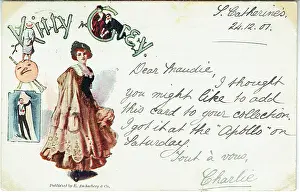 Kitty Grey
S. Catherine's
24.12.01.
Dear Maudie
I thought
you might like to add
this card to your collection.
I got it at the "Apollo" on
Saturday.
Tout à vous,
Charlie